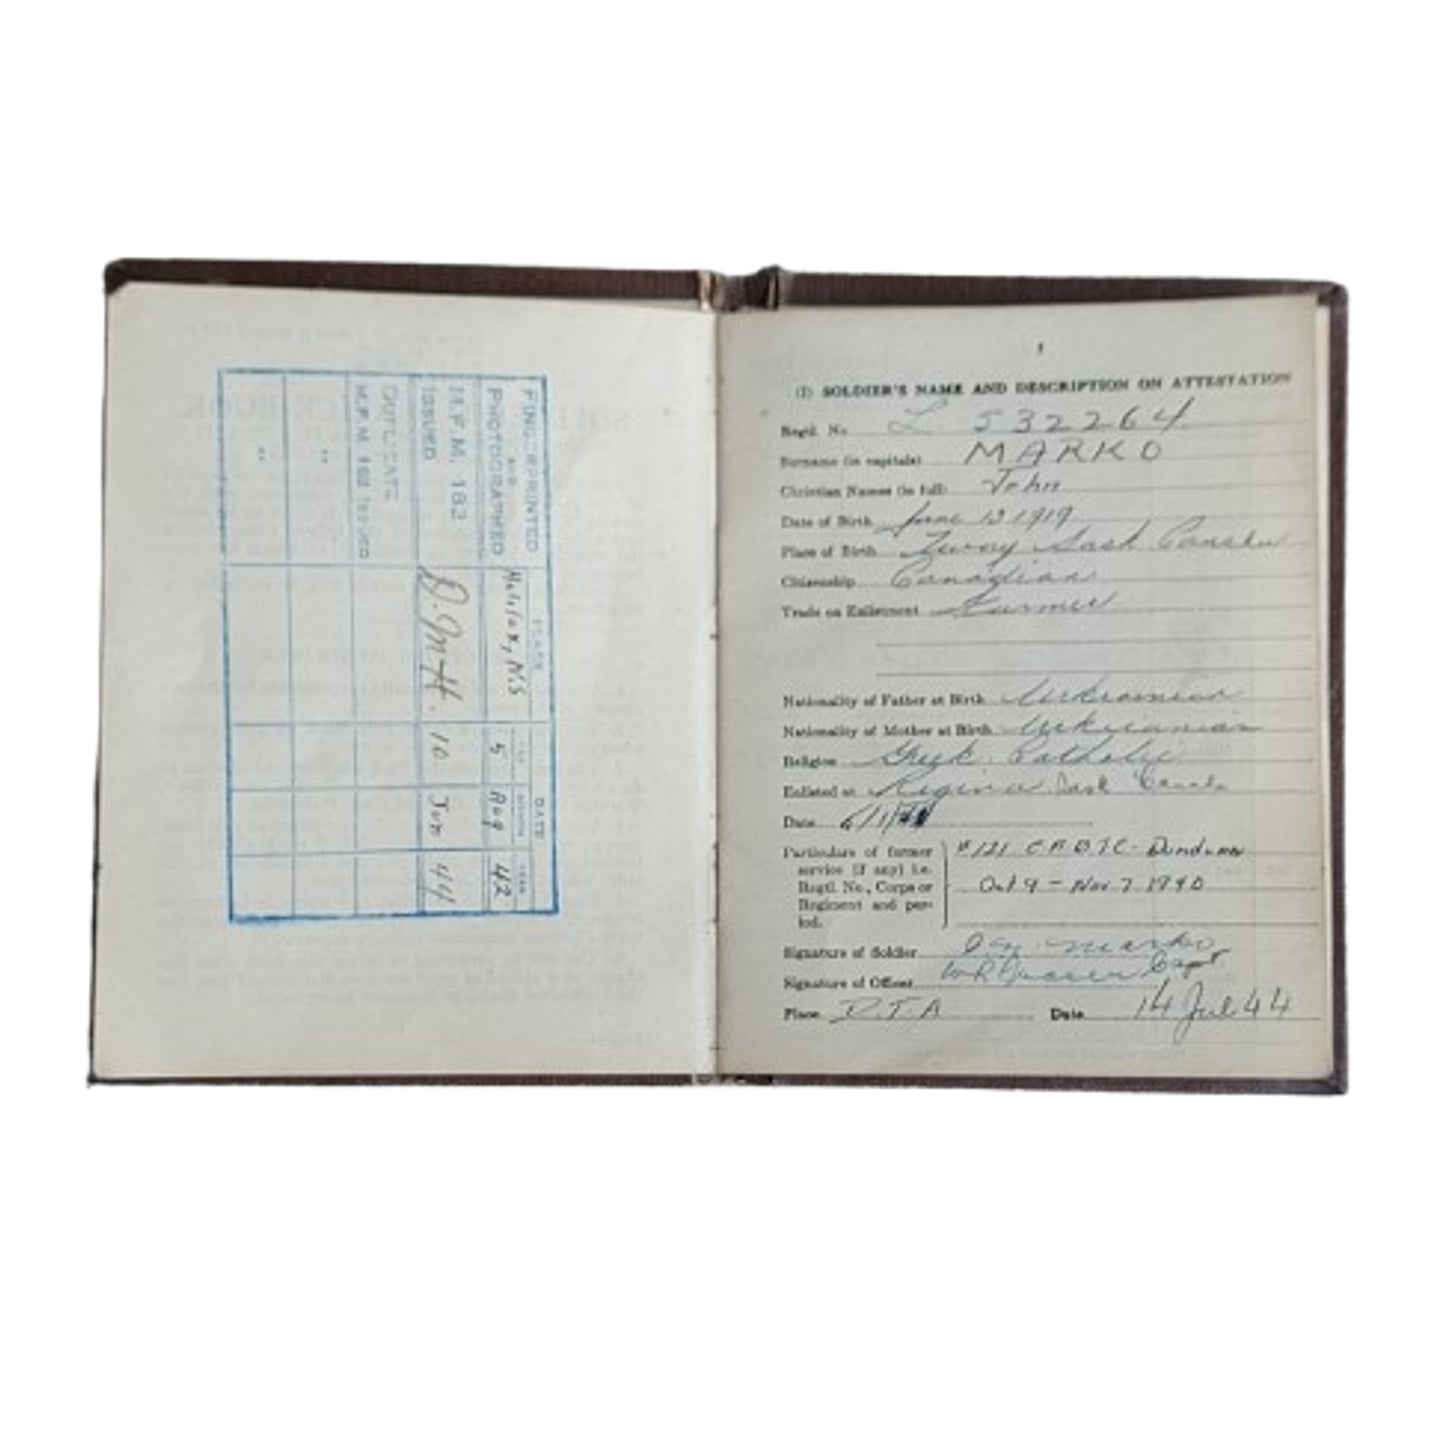 FINGERPRINTED
AND
PHOTOGRAPHED
Halifax, N.S
5
Aug
42
M.F.M. 182
ISSUED
10
Jan
44
DUPLICATE
M.F.M. 182 ISSUED
"
"
PLACE
DATE
DAY
MONTH
YEAR
1
(1) SOLDIER'S NAME AND DESCRIPTION ON ATTESTATION
Regtl. No. L. 532264
Surname (in capitals) MARKO
Christian Names (in full) John
Date of Birth June 13 1919
Place of Birth Sask
Citizenship Canadian
Trade on Enlistment Farmer
Nationality of Father at Birth Ukrainian
Nationality of Mother at Birth Ukrainian
Religion Greek Catholic
Enlisted at Regina Sask Canada
Date
Particulars of former
service (if any) i.e.
Regtl. No., Corps or
Regiment and per-
iod.
#121 Dundurn
Oct 9 - Nov 7 1940
Signature of Soldier Marko
Signature of Officer Capt
Place D.T.A Date 14 Jul 44